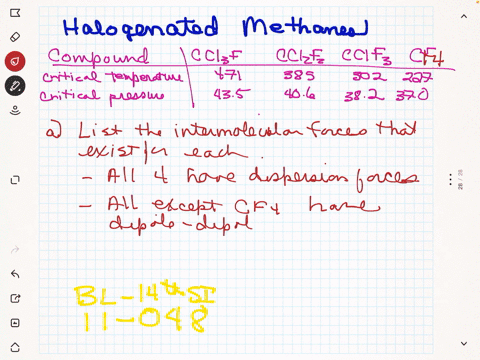 Halogenated Methanes
Compound CCl3F CCl2F2 CClF3 CF4
critical temperature 471 385 302 227
critical pressure 43.5 40.6 38.2 37.0
a) List the intermolecular forces that
exist for each
- All 4 have dispersion forces
- All except CF4 have
dipole-dipol
BL-14th SI
11-048
28 / 28